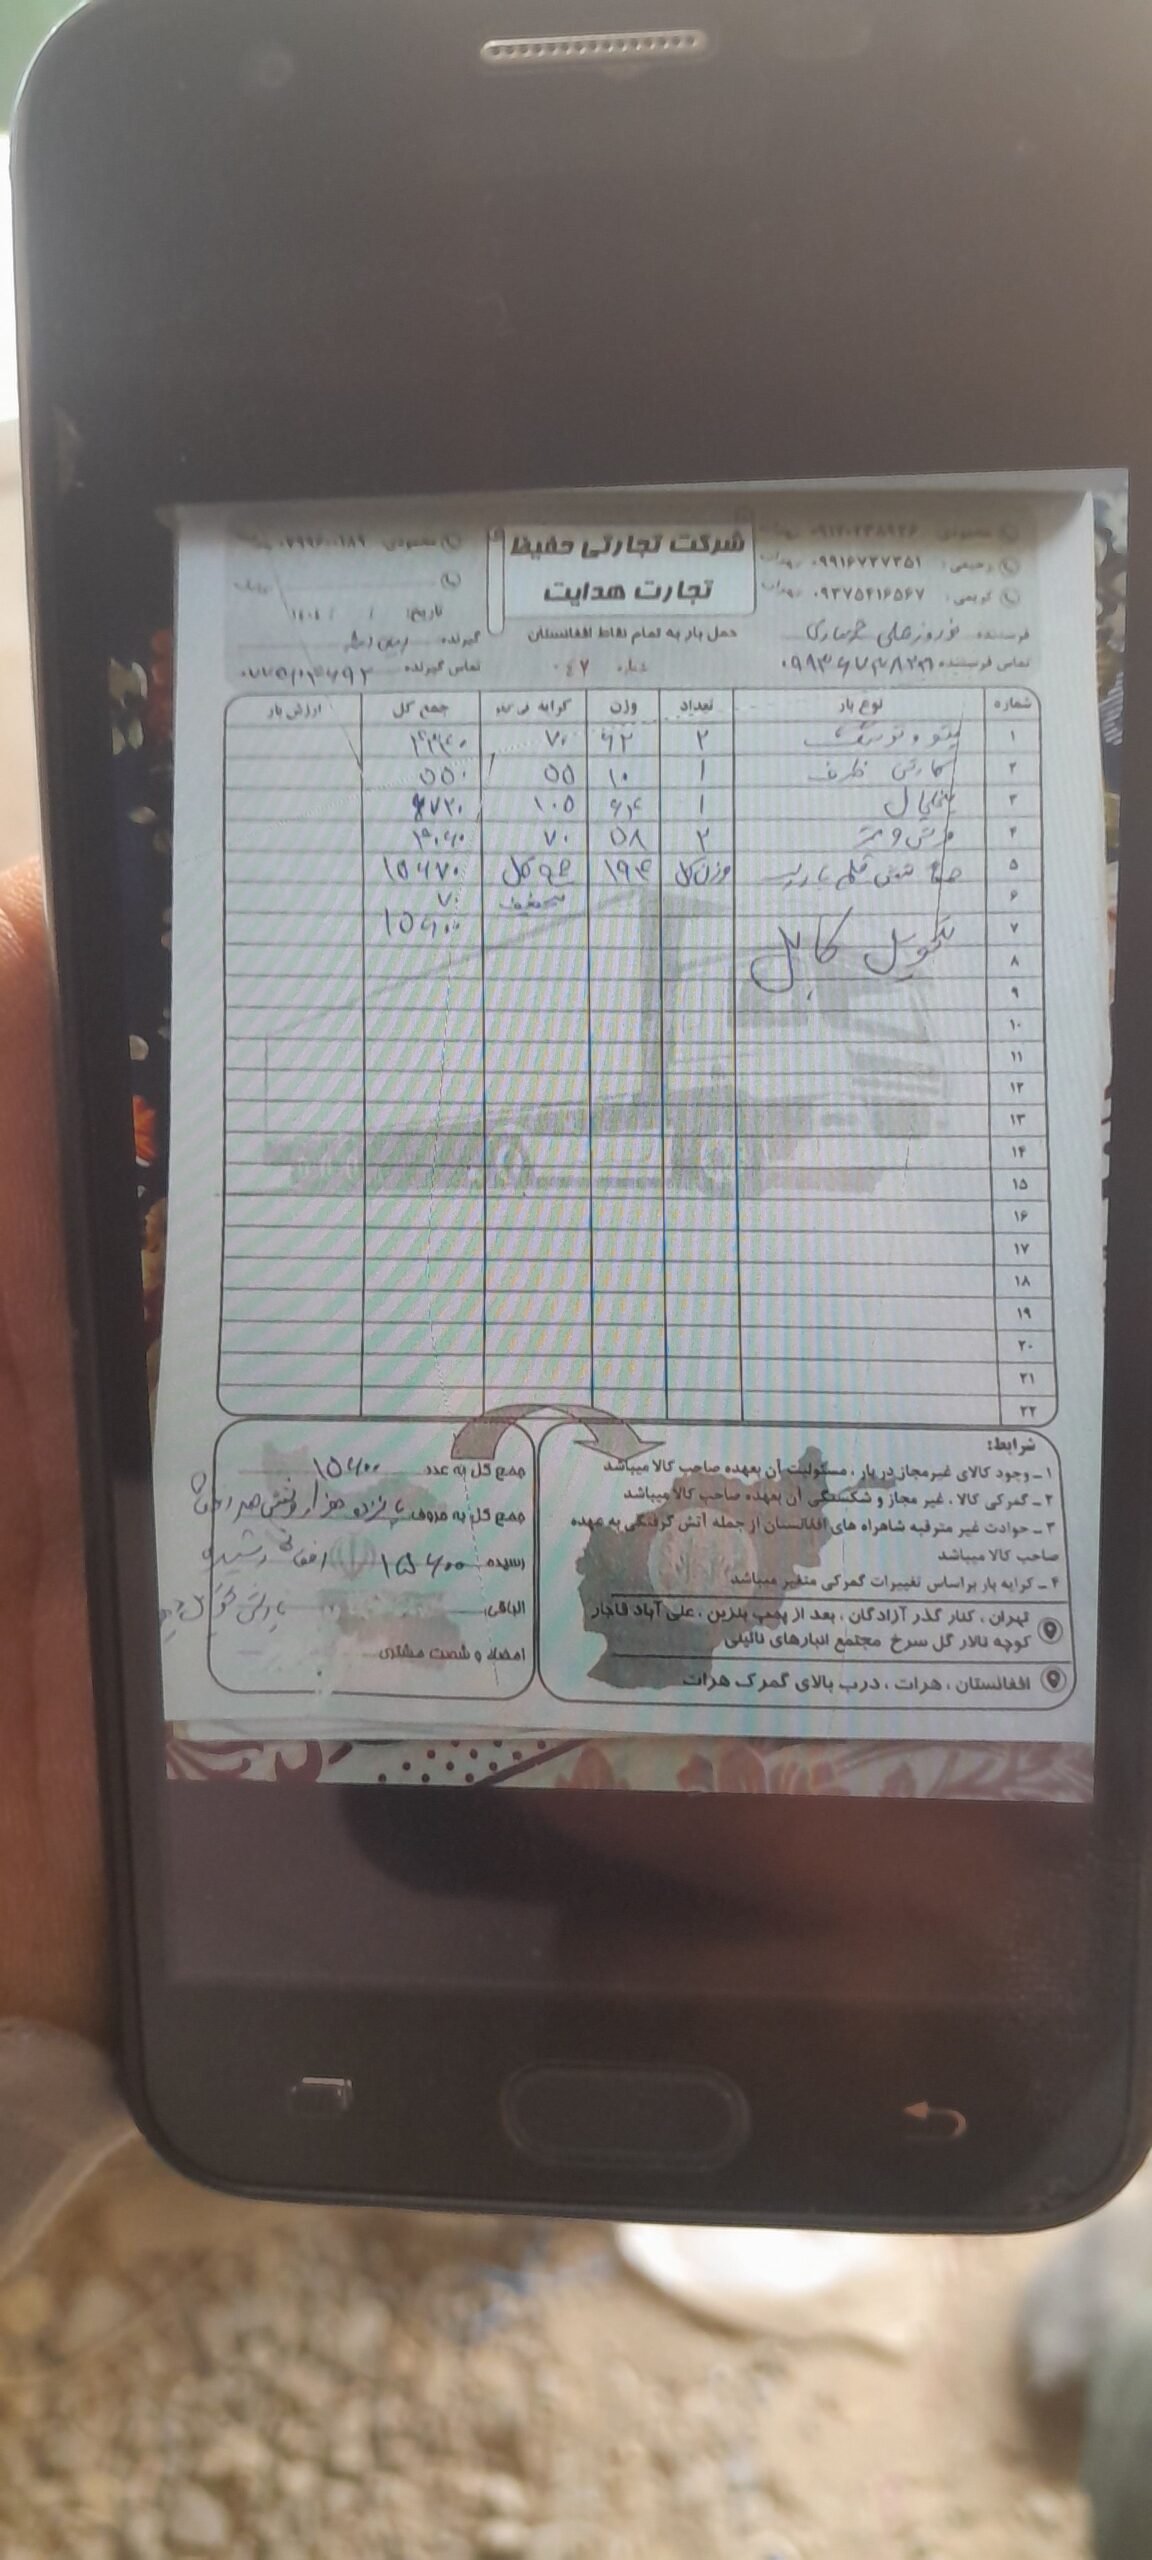 شرکت تجارتی حفیظ
تجارت هدایت
حمل بار به تمام نقاط افغانستان
۰۹۱۲۰۲۳۸۹۲۶
رحیمی: ۰۹۹۱۶۷۳۷۳۵۱
کریمی: ۰۹۳۷۵۴۱۶۵۶۷
تاریخ: / /
فرستنده
گیرنده
تماس فرستنده
شماره
تماس گیرنده
شماره نوع بار تعداد وزن کرایه فی کیلو جمع کل ارزش بار
۱ پتو و توشک ۲ ۶۲ ۷۰ ۴۳۴۰
۲ کارتن ظرف ۱ ۱۰ ۵۵ ۵۵۰
۳ یخچال ۱ ۶۴ ۱۰۵ ۶۷۲۰
۴ ۲ ۵۸ ۷۰ ۴۰۶۰
۵ وزن کل ۱۹۴ جمع کل ۱۵۶۷۰
۶ تخفیف ۷۰
۷ تحویل کابل ۱۵۶۰۰
۸
۹
۱۰
۱۱
۱۲
۱۳
۱۴
۱۵
۱۶
۱۷
۱۸
۱۹
۲۰
۲۱
۲۲
شرایط:
۱- وجود کالای غیرمجاز در بار، مسئولیت آن بعهده صاحب کالا میباشد
۲- گمرکی کالا، غیر مجاز و شکستگی آن بعهده صاحب کالا میباشد
۳- حوادث غیر مترقبه شاهراه های افغانستان از جمله آتش گرفتگی به عهده
صاحب کالا میباشد
۴- کرایه بار براساس تغییرات گمرکی متغیر میباشد
تهران، کنار گذر آزادگان، بعد از پمپ بنزین، علی آباد قاجار
کوچه تالار گل سرخ مجتمع انبارهای نائینی
افغانستان، هرات، درب بالای گمرک هرات
جمع کل به عدد ۱۵۶۰۰
جمع کل به حروف پانزده هزار و شش صد افغانی
رسیده ۱۵۶۰۰ افغانی رسیده
الباقی:
امضاء و شصت مشتری